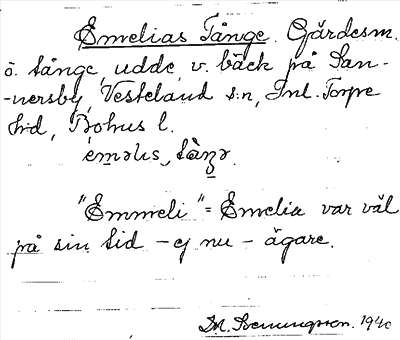 Emelias Tånge. Gärdesm.
ö. tånge, udde, v. bäck på San-
-nersby, Vesteland s:n, Inl. Torpe
hd, Bohus l.
"Emmeli" = Emelia var väl
på sin tid - ej nu - ägare.
1940